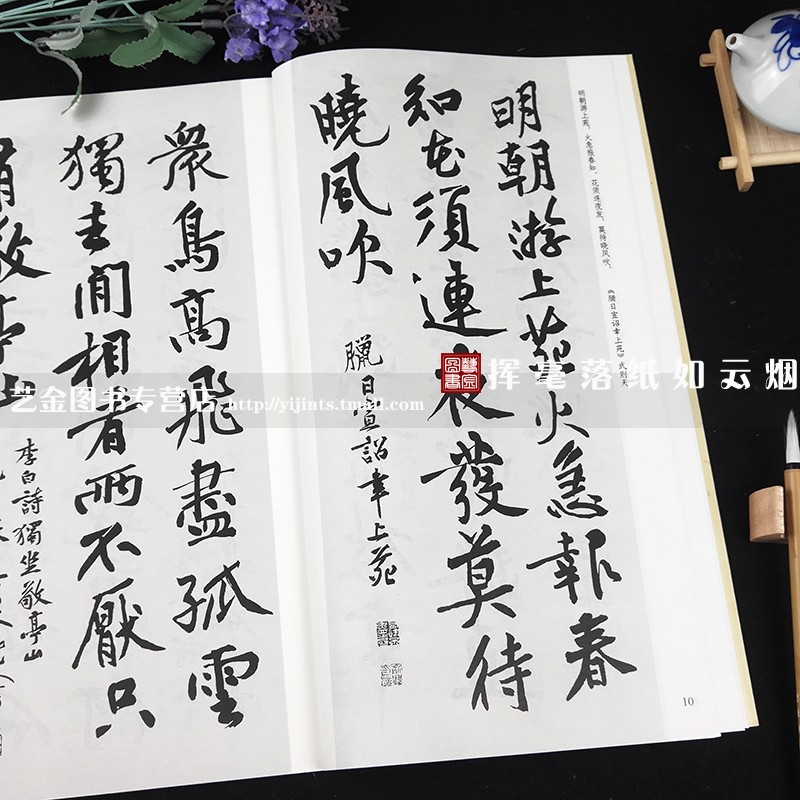 明朝游上苑，火急报春知。花须连夜发，莫待晓风吹。
《腊日宣诏幸上苑》武则天
明朝游上苑火急報春
知花須連夜發莫待
曉風吹
臘日宣詔幸上苑
10
衆鳥高飛盡孤雲
獨去閒相看兩不厭只
敬亭山
李白詩獨坐敬亭山
艺金图书专营店 http://yijints.tmall.com
挥毫落纸如云烟